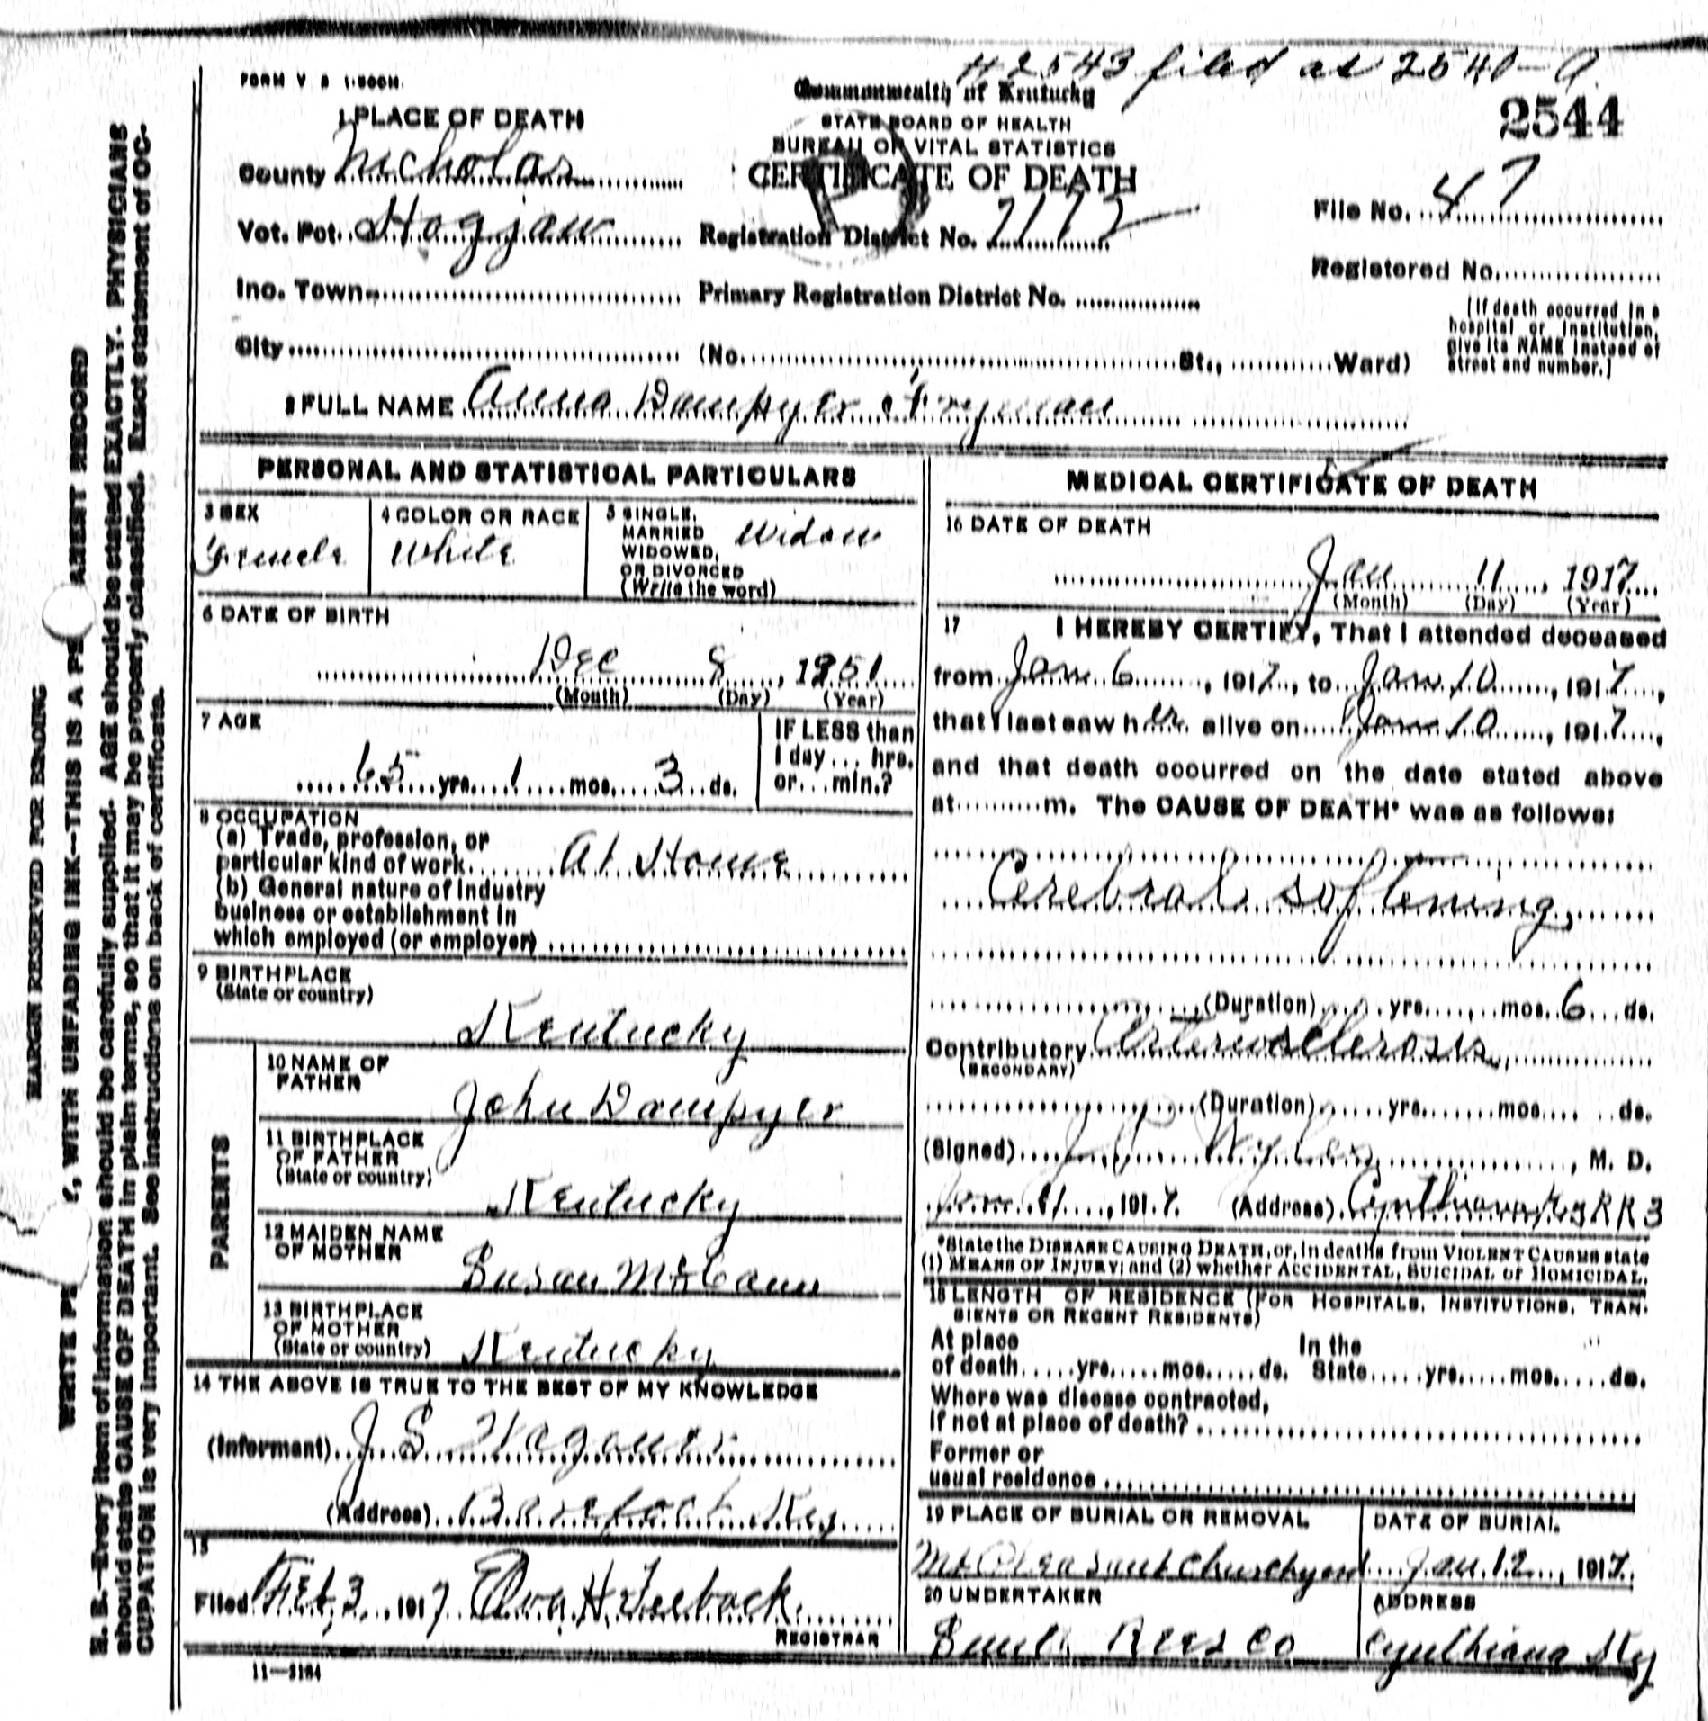 #2543 filed at 2540-a
FORM V. S 1-500M.
Commonwealth of Kentucky
STATE BOARD OF HEALTH
BUREAU OF VITAL STATISTICS
CERTIFICATE OF DEATH
2544
1 PLACE OF DEATH
County Nicholas
File No. 47
Vot. Pct. Hogjaw Registration District No. 7172
Registered No.
Inc. Town Primary Registration District No.
(If death occurred in a
hospital or institution,
give its NAME instead of
street and number.)
City (No. St., Ward)
2 FULL NAME Anna Dampyer Fryman
PERSONAL AND STATISTICAL PARTICULARS
3 SEX
Female
4 COLOR OR RACE
White
5 SINGLE,
MARRIED
WIDOWED,
OR DIVORCED
(Write the word)
Widow
6 DATE OF BIRTH
Dec 8, 1851
(Month) (Day) (Year)
7 AGE
65 yrs. 1 mos. 3 ds.
IF LESS than
1 day ... hrs.
or ... min.?
8 OCCUPATION
(a) Trade, profession, or
particular kind of work. At Home
(b) General nature of Industry
business or establishment in
which employed (or employer)
9 BIRTHPLACE
(State or country)
Kentucky
PARENTS
10 NAME OF
FATHER
John Dampyer
11 BIRTHPLACE
OF FATHER
(State or country)
Kentucky
12 MAIDEN NAME
OF MOTHER
Susan McCann
13 BIRTHPLACE
OF MOTHER
(State or country)
Kentucky
14 THE ABOVE IS TRUE TO THE BEST OF MY KNOWLEDGE
(Informant) J. S.
(Address) Barefoot Ky
15
Filed Feb 3, 1917
REGISTRAR
11—3184
MEDICAL CERTIFICATE OF DEATH
16 DATE OF DEATH
Jan 11, 1917
(Month) (Day) (Year)
17 I HEREBY CERTIFY, That I attended deceased
from Jan 6, 1917, to Jan 10, 1917,
that I last saw her alive on Jan 10, 1917,
and that death occurred on the date stated above
at m. The CAUSE OF DEATH* was as follows:
Cerebral softening
(Duration) yrs. mos. 6 ds.
Contributory Arteriosclerosis
(SECONDARY)
(Duration) yrs. mos. ds.
(Signed) M. D.
Jan. 11, 1917. (Address) Cynthiana Ky RR 3
*State the DISEASE CAUSING DEATH, or, in deaths from VIOLENT CAUSES state
(1) MEANS OF INJURY; and (2) whether ACCIDENTAL, SUICIDAL or HOMICIDAL.
18 LENGTH OF RESIDENCE (FOR HOSPITALS, INSTITUTIONS, TRAN-
SIENTS OR RECENT RESIDENTS)
At place In the
of death yrs. mos. ds. State yrs. mos. ds.
Where was disease contracted,
if not at place of death?
Former or
usual residence
19 PLACE OF BURIAL OR REMOVAL
Mt Pleasant Churchyard
DATE OF BURIAL
Jan 12, 1917.
20 UNDERTAKER
Rees Co
ADDRESS
Cynthiana Ky
MARGIN RESERVED FOR BINDING
WRITE PL Y, WITH UNFADING INK—THIS IS A PE ANENT RECORD
N. B.—Every item of information should be carefully supplied. AGE should be stated EXACTLY. PHYSICIANS
should state CAUSE OF DEATH in plain terms, so that it may be properly classified. Exact statement of OC-
CUPATION is very important. See instructions on back of certificate.